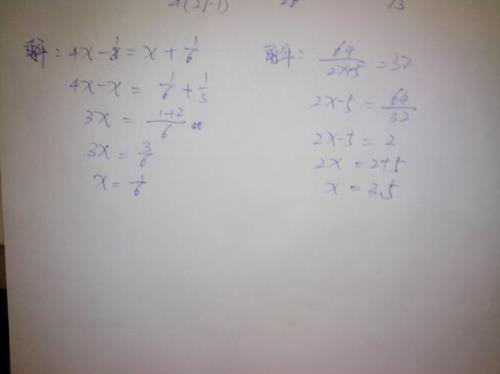 解：4x-1/3=x+1/6
4x-x=1/6+1/3
3x=(1+2)/6
3x=3/6
x=1/6
解：64/(2x-5)=32
2x-5=64/32
2x-5=2
2x=2+5
x=3.5